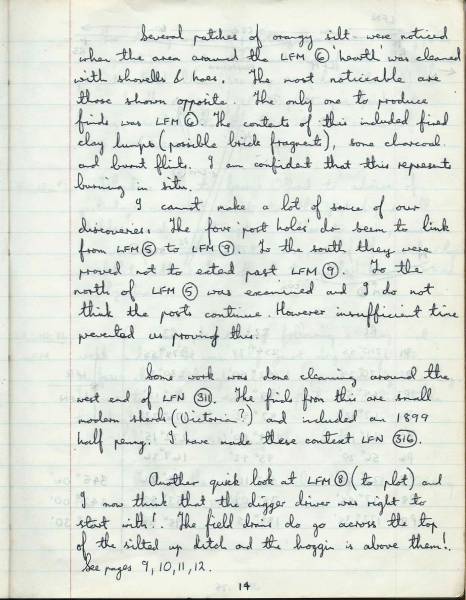 Several patches of orangy silt were noticed
when the area around the LFM ⑥ 'hearth' was cleaned
with shovels & hoes. The most noticeable are
those shown opposite. The only one to produce
finds was LFM ⑥. The contents of this included fired
clay lumps (possible brick fragments), some charcoal
and burnt flints. I am confident that this represents
burning in situ.
I cannot make a lot of sense of our
discoveries. The four 'post holes' do seem to link
from LFM ⑤ to LFM ⑨. To the south they were
proved not to extend past LFM ⑨. To the
north of LFM ⑤ was examined and I do not
think the posts continue. However insufficient time
prevented us proving this.
Some work was done cleaning around the
west end of LFN (311). The finds from this are small
modern sherds (Victorian?) and included an 1899
half penny. I have made these context LFN (316).
Another quick look at LFM ⑧ (to plot) and
I now think that the digger driver was right to
start with!. The field drains do go across the top
of the silted up ditch and the hoggin is above them!.
See pages 9, 10, 11, 12.
14